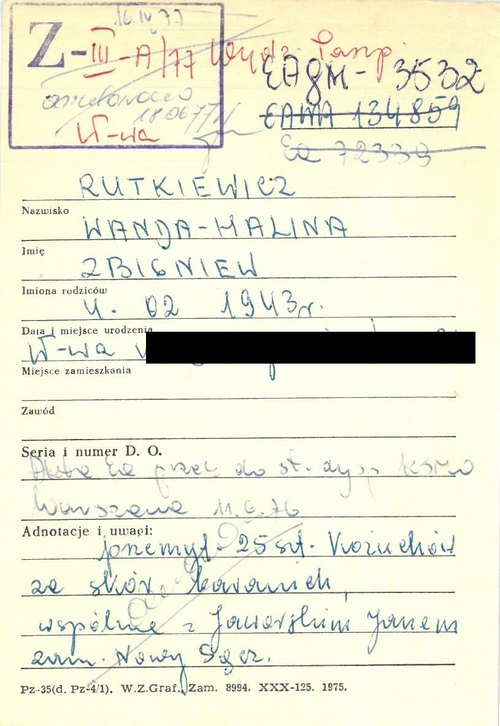 16.IV.77
Z-III-A/77 Wydz. Paszp.
EAGM - 3532
EAWA 134859
18.06.77
Ea 72339
W-wa
RUTKIEWICZ
Nazwisko
WANDA-HALINA
Imię
ZBIGNIEW
Imiona rodziców
4. 02 1943r.
Data i miejsce urodzenia
W-wa
Miejsce zamieszkania
Zawód
Seria i numer D. O.
do st. dysp. KSMO
Warszawa 11.6.76
Adnotacje i uwagi:
przemyt - 25 szt. kożuchów
ze skór baranich,
wspólnie z Jaworskim Janem
zam. Nowy Sącz.
Pz-35(d. Pz-4/1). W.Z.Graf., Zam. 8994. XXX-125. 1975.